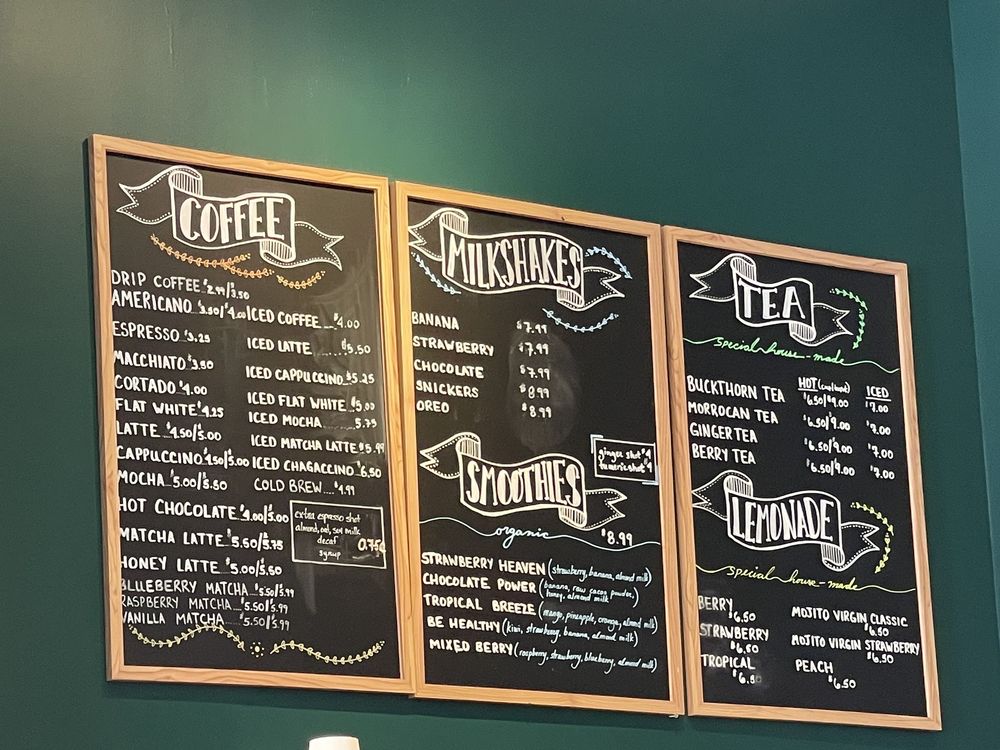 COFFEE
DRIP COFFEE $2.99/3.50
AMERICANO 3.50/$4.00
ESPRESSO $3.25
MACCHIATO $3.50
CORTADO $4.00
FLAT WHITE $4.25
LATTE $4.50/5.00
CAPPUCCINO $4.50/5.00
MOCHA $5.00/5.50
HOT CHOCOLATE $4.00/5.00
MATCHA LATTE $5.50/5.75
HONEY LATTE $5.00/5.50
BLUEBERRY MATCHA $5.50/5.99
RASPBERRY MATCHA $5.50/5.99
VANILLA MATCHA $5.50/5.99
ICED COFFEE $4.00
ICED LATTE $5.50
ICED CAPPUCCINO $5.25
ICED FLAT WHITE $5.00
ICED MOCHA 5.75
ICED MATCHA LATTE $5.99
ICED CHAGACCINO $6.50
COLD BREW $4.99
extra espresso shot
almond, oat, soy milk
decaf 0.75¢
syrup
MILKSHAKES
BANANA $7.99
STRAWBERRY $7.99
CHOCOLATE $7.99
SNICKERS $8.99
OREO $8.99
ginger shot $4
turmeric shot $4
SMOOTHIES
organic $8.99
STRAWBERRY HEAVEN (strawberry, banana, almond milk)
CHOCOLATE POWER (banana, raw cacao powder,
honey, almond milk)
TROPICAL BREEZE (mango, pineapple, orange, almond milk)
BE HEALTHY (kiwi, strawberry, banana, almond milk)
MIXED BERRY (raspberry, strawberry, blueberry, almond milk)
TEA
special house-made
HOT ICED
BUCKTHORN TEA $6.50/$9.00 $7.00
MORROCAN TEA $6.50/9.00 $7.00
GINGER TEA $6.50/9.00 $7.00
BERRY TEA $6.50/9.00 $7.00
LEMONADE
special house-made
BERRY
$6.50
STRAWBERRY
$6.50
TROPICAL
$6.50
MOJITO VIRGIN CLASSIC
$6.50
MOJITO VIRGIN STRAWBERRY
$6.50
PEACH
$6.50